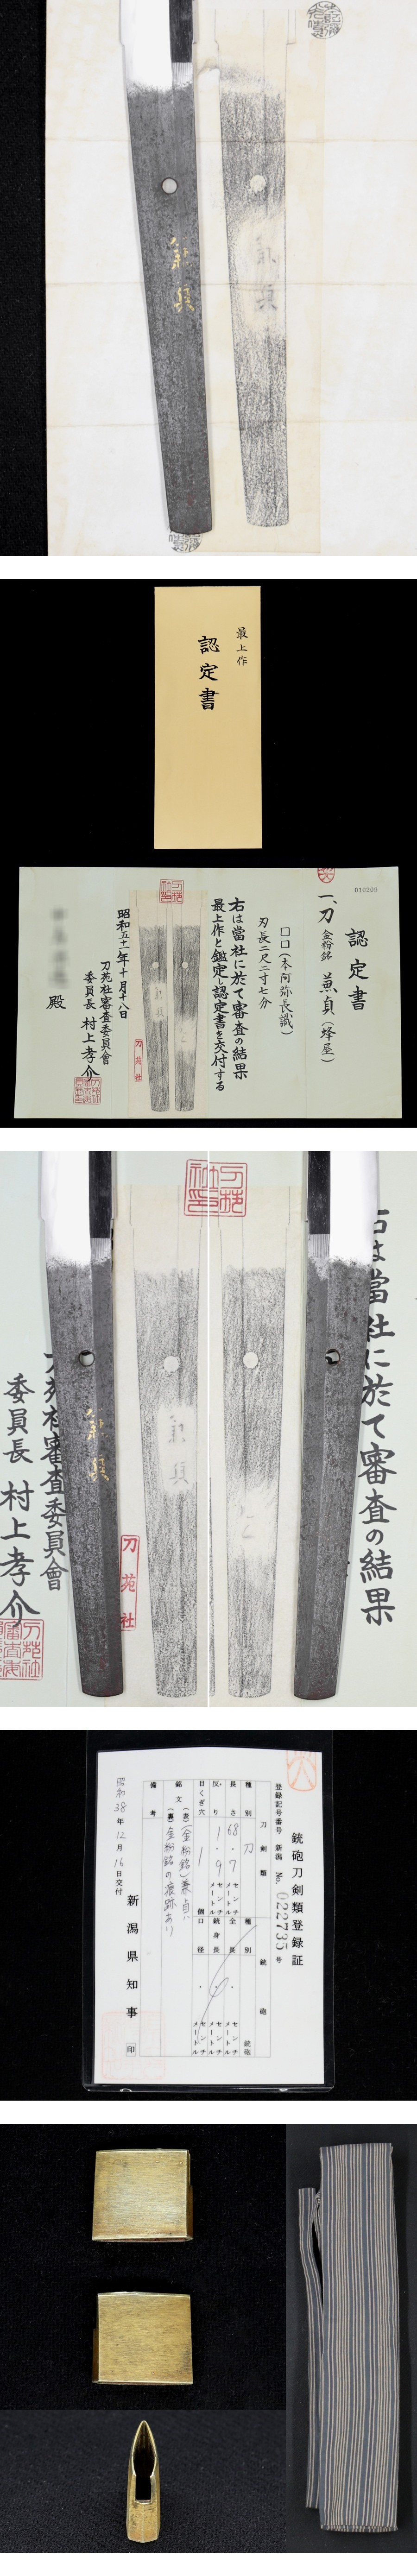 兼貞
最上作
認定書
010209
認定書
一、刀 金粉銘 兼貞(蜂屋)
口口(本阿弥長識)
刃長二尺二寸七分
右は當社に於て審査の結果
最上作と鑑定し認定書を交付する
昭和五十一年十月十八日
刀苑社審査委員會
委員長 村上孝介
殿
刀苑社
刀苑社審査委員會
委員長 村上孝介
兼貞
刀苑社
右は當社に於て審査の結果
銃砲刀剣類登録証
登録記号番号 新潟 No. 022735 号
刀剣類
銃砲
種別 刀
種別 銃砲
長さ 68.7 センチメートル
全長 . センチメートル
反り 1.9 センチメートル
銃身長 . センチメートル
目くぎ穴 1 個
口径 . センチメートル
銘文 (表)(金粉銘)兼貞
(裏)金粉銘の痕跡あり
備考
昭和38年12月16日交付
新潟県知事 印